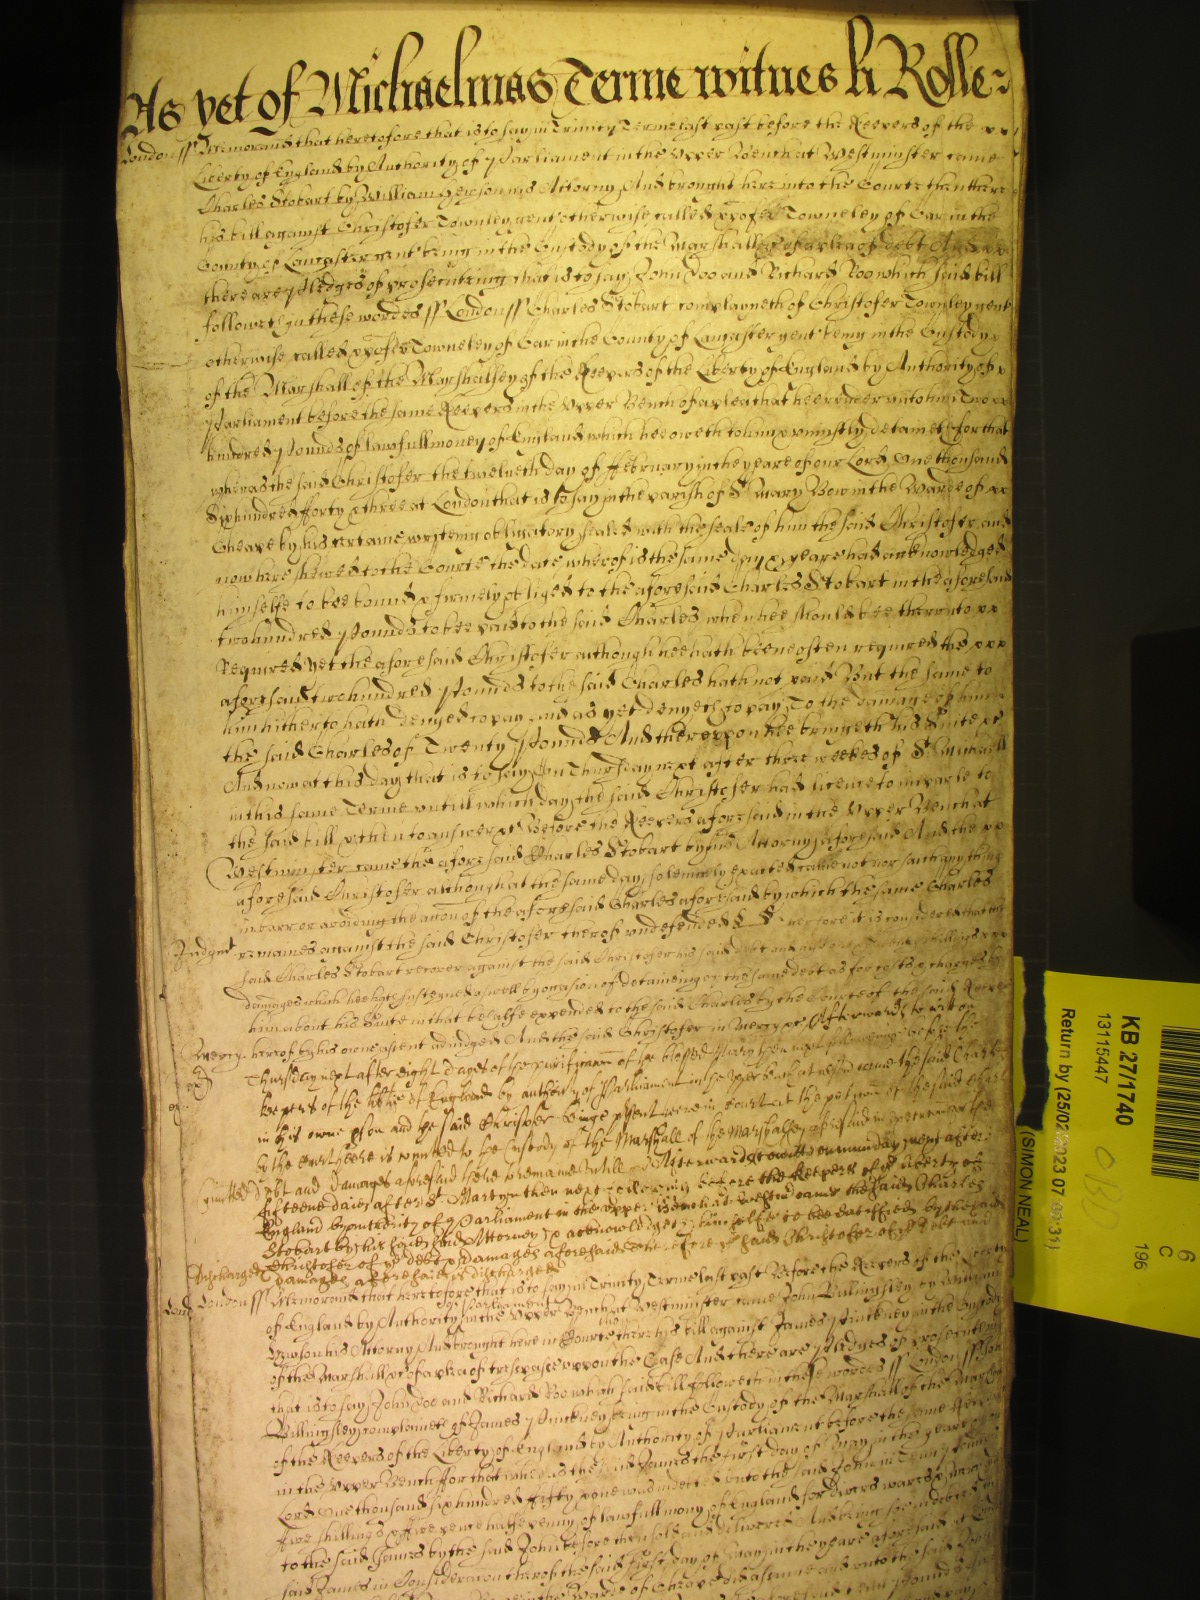 As yet of Michaelmas Terme witnes H Rolle
London ss Memorand that heretofore that is to say in Trinity Terme last past before the Keepers of the
Liberty of England by Authority of Parliament in the Upper Bench at Westminster came
Charles Stobart by William his Attorny And brought here into the Courte then there
his bill against Christofer Townley gent otherwise called Towneley of Car in the
County of Lancaster gent being in the Custody of the Marshall &c of a plea of debt And
there are Pledges of prosecuteing that is to say John Doo and Richard Roo which said bill
followeth in these wordes ss London ss Charles Stobart complayneth of Christofer Townley gent
otherwise called Towneley of Car in the County of Lancaster gent being in the Custody
of the Marshall of the Marshalsey of the Keepers of the Liberty of England by Authority of
Parliament before the same Keepers in the Upper Bench of a plea that hee render unto him Two
hundred Pounds of lawfull money of England which hee oweth to him & uniustly detaineth for that
wheras the said Christofer the twelueth day of ffebruary in the yeare of our Lord One thousand
Six hundred fforty & three at London that is to say in the parish of St Mary Bow in the Warde of
Cheape by his certaine writeing obligatory sealed with the seale of him the said Christofer and
now here shewed to the Courte the date wherof is the same day & yeare had acknowledged
himselfe to bee bound & firmely obliged to the aforesaid Charles Stobart in the aforesaid
two hundred Pounds to bee paid to the said Charles when hee should bee therunto
Required Yet the aforesaid Christofer although hee hath beene often required the
aforesaid two hundred Pounds to the said Charles hath not paid But the same to
him hitherto hath denyed to pay and as yet denyeth to pay To the damage of him
the said Charles of Twenty Pounds And therupon hee bringeth his Suite &c
And now at this day that is to say on Thursday next after three weekes of St Michaell
in this same Terme untill which day the said Christofer had licence to imparle to
the said bill & then to answer &c Before the Keepers aforesaid in the Upper Bench at
Westminster came the aforesaid Charles Stobart by his Attorny aforesaid And the
aforesaid Christofer although at the same day solemnely exacted came not nor saith any thing
in barr or avoiding the accion of the aforesaid Charles aforesaid by which the same Charles
Judgmt remaines against the said Christofer therof undefended Therfore it is considered that the
said Charles Stobart recover against the said Christofer his said debt and
damages which hee hath susteyned aswell by occasion of detaineing of the same debt as for costs & charges by
him about his Suite in that behalfe expended to the said Charles by the Courte of the said Keepers
Mercy hereof by his owne assent adiudged And the said Christofer in Mercy &c Afterwards to wit on
Thursday next after eight dayes of the purificacon of the blessed Mary then next following before the
keepers of the liberty of England by authority of Parliament in the upper bench at came the said Charles
in his owne pson and the said Christofer beinge psent here in Court at the peticon of the said Charles
by the Court heere is comitted to the Custody of the Marshall of the Marshalsey aforesaid in for the
Comitted debt and damages aforesaid there to remaine untill &c Afterwards to witt on munday next after
fifteene daies after St Martyn then next following before the Keepers of ye liberty of
England by authority of Parliament in the upper bench at came the said Charles
Stobart by his said Attorney & acknowledgeth himselfe to bee satisfied by the said
Christofer of ye debt & damages aforesaid Therefore ye said Christofer of ye debt and
discharged damages aforesaid is discharged
Lond London ss Memorand that heretofore that is to say in Trinity Terme last past before the Keepers of the Liberty
of Parliament
of England by Authority in the Upper Bench at Westminster came John Billingsley by William
then
his Attorny And brought here in Courte there his bill against James Pinckney in the Custody
of the Marshall &c of a plea of trespasse uppon the Case And there are Pledges of prosecuteing
that is to say John Doo and Richard Roo which said bill followeth in these wordes ss London ss John
Billingsley complaineth of James Pinckney being in the Custody of the Marshall of the Marshalsey
of the Keepers of the Liberty of England by Authority of Parliament before the same Keepers
in the Upper Bench ffor that wheras the said James the first day of May in the yeare of our
Lord One thousand six hundred ffifty & one was indebted unto the said John in
ffive shillings & ffive pence halfe penny of lawfull mony of England for divers wares &
to the said James by the said John before then sold and delivered And being soe indebted
said James in Consideracon therof the said first day of May in the yeare aforesaid at
in the Warde of Cheape did assume and unto the said John
KB 27/1740
13115447
Return by (25/02/2023 07:
(SIMON NEAL)
6
C
196